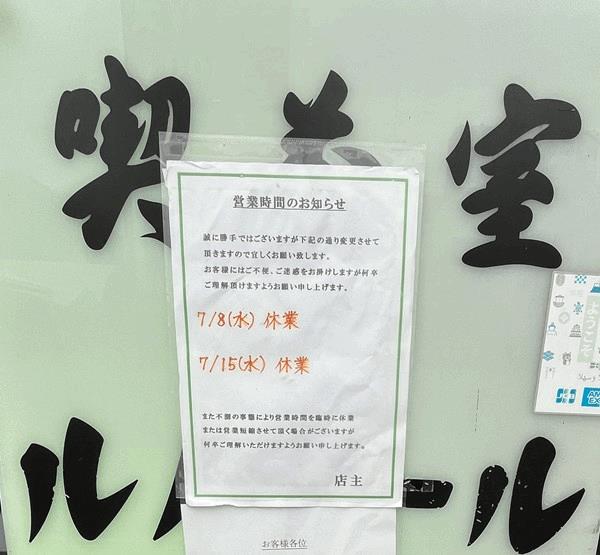 喫茶室
営業時間のお知らせ
誠に勝手ではございますが下記の通り変更させて
頂きますので宜しくお願い致します。
お客様にはご不便、ご迷惑をお掛けしますが何卒
ご理解頂けますようお願い申し上げます。
7/8(水) 休業
7/15(水) 休業
また不測の事態により営業時間を臨時に休業
または営業短縮させて頂く場合がございますが
何卒ご理解いただけますようお願い申し上げます。
店主
ル ール
お客様各位
ようこそ
JCB
AM
EX